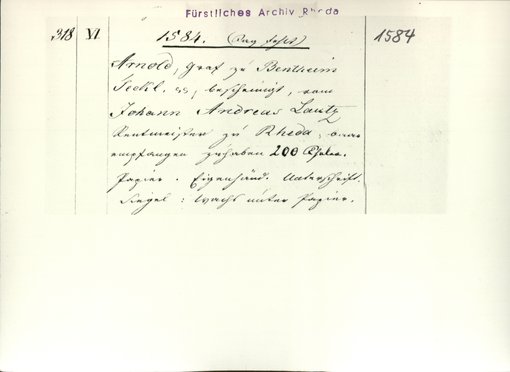 Fürstliches Archiv Rheda
318 VI 1584. (Tag fehlt) 1584
Arnold, Graf zu Bentheim
Teckl. bescheinigt, vom
Johann Andreas Lautz
Rentmeister zu Rheda,
empfangen zuhaben 200 Thaler.
Papier. Eigenhänd. Unterschrift.
Siegel: Wachs unter Papier.